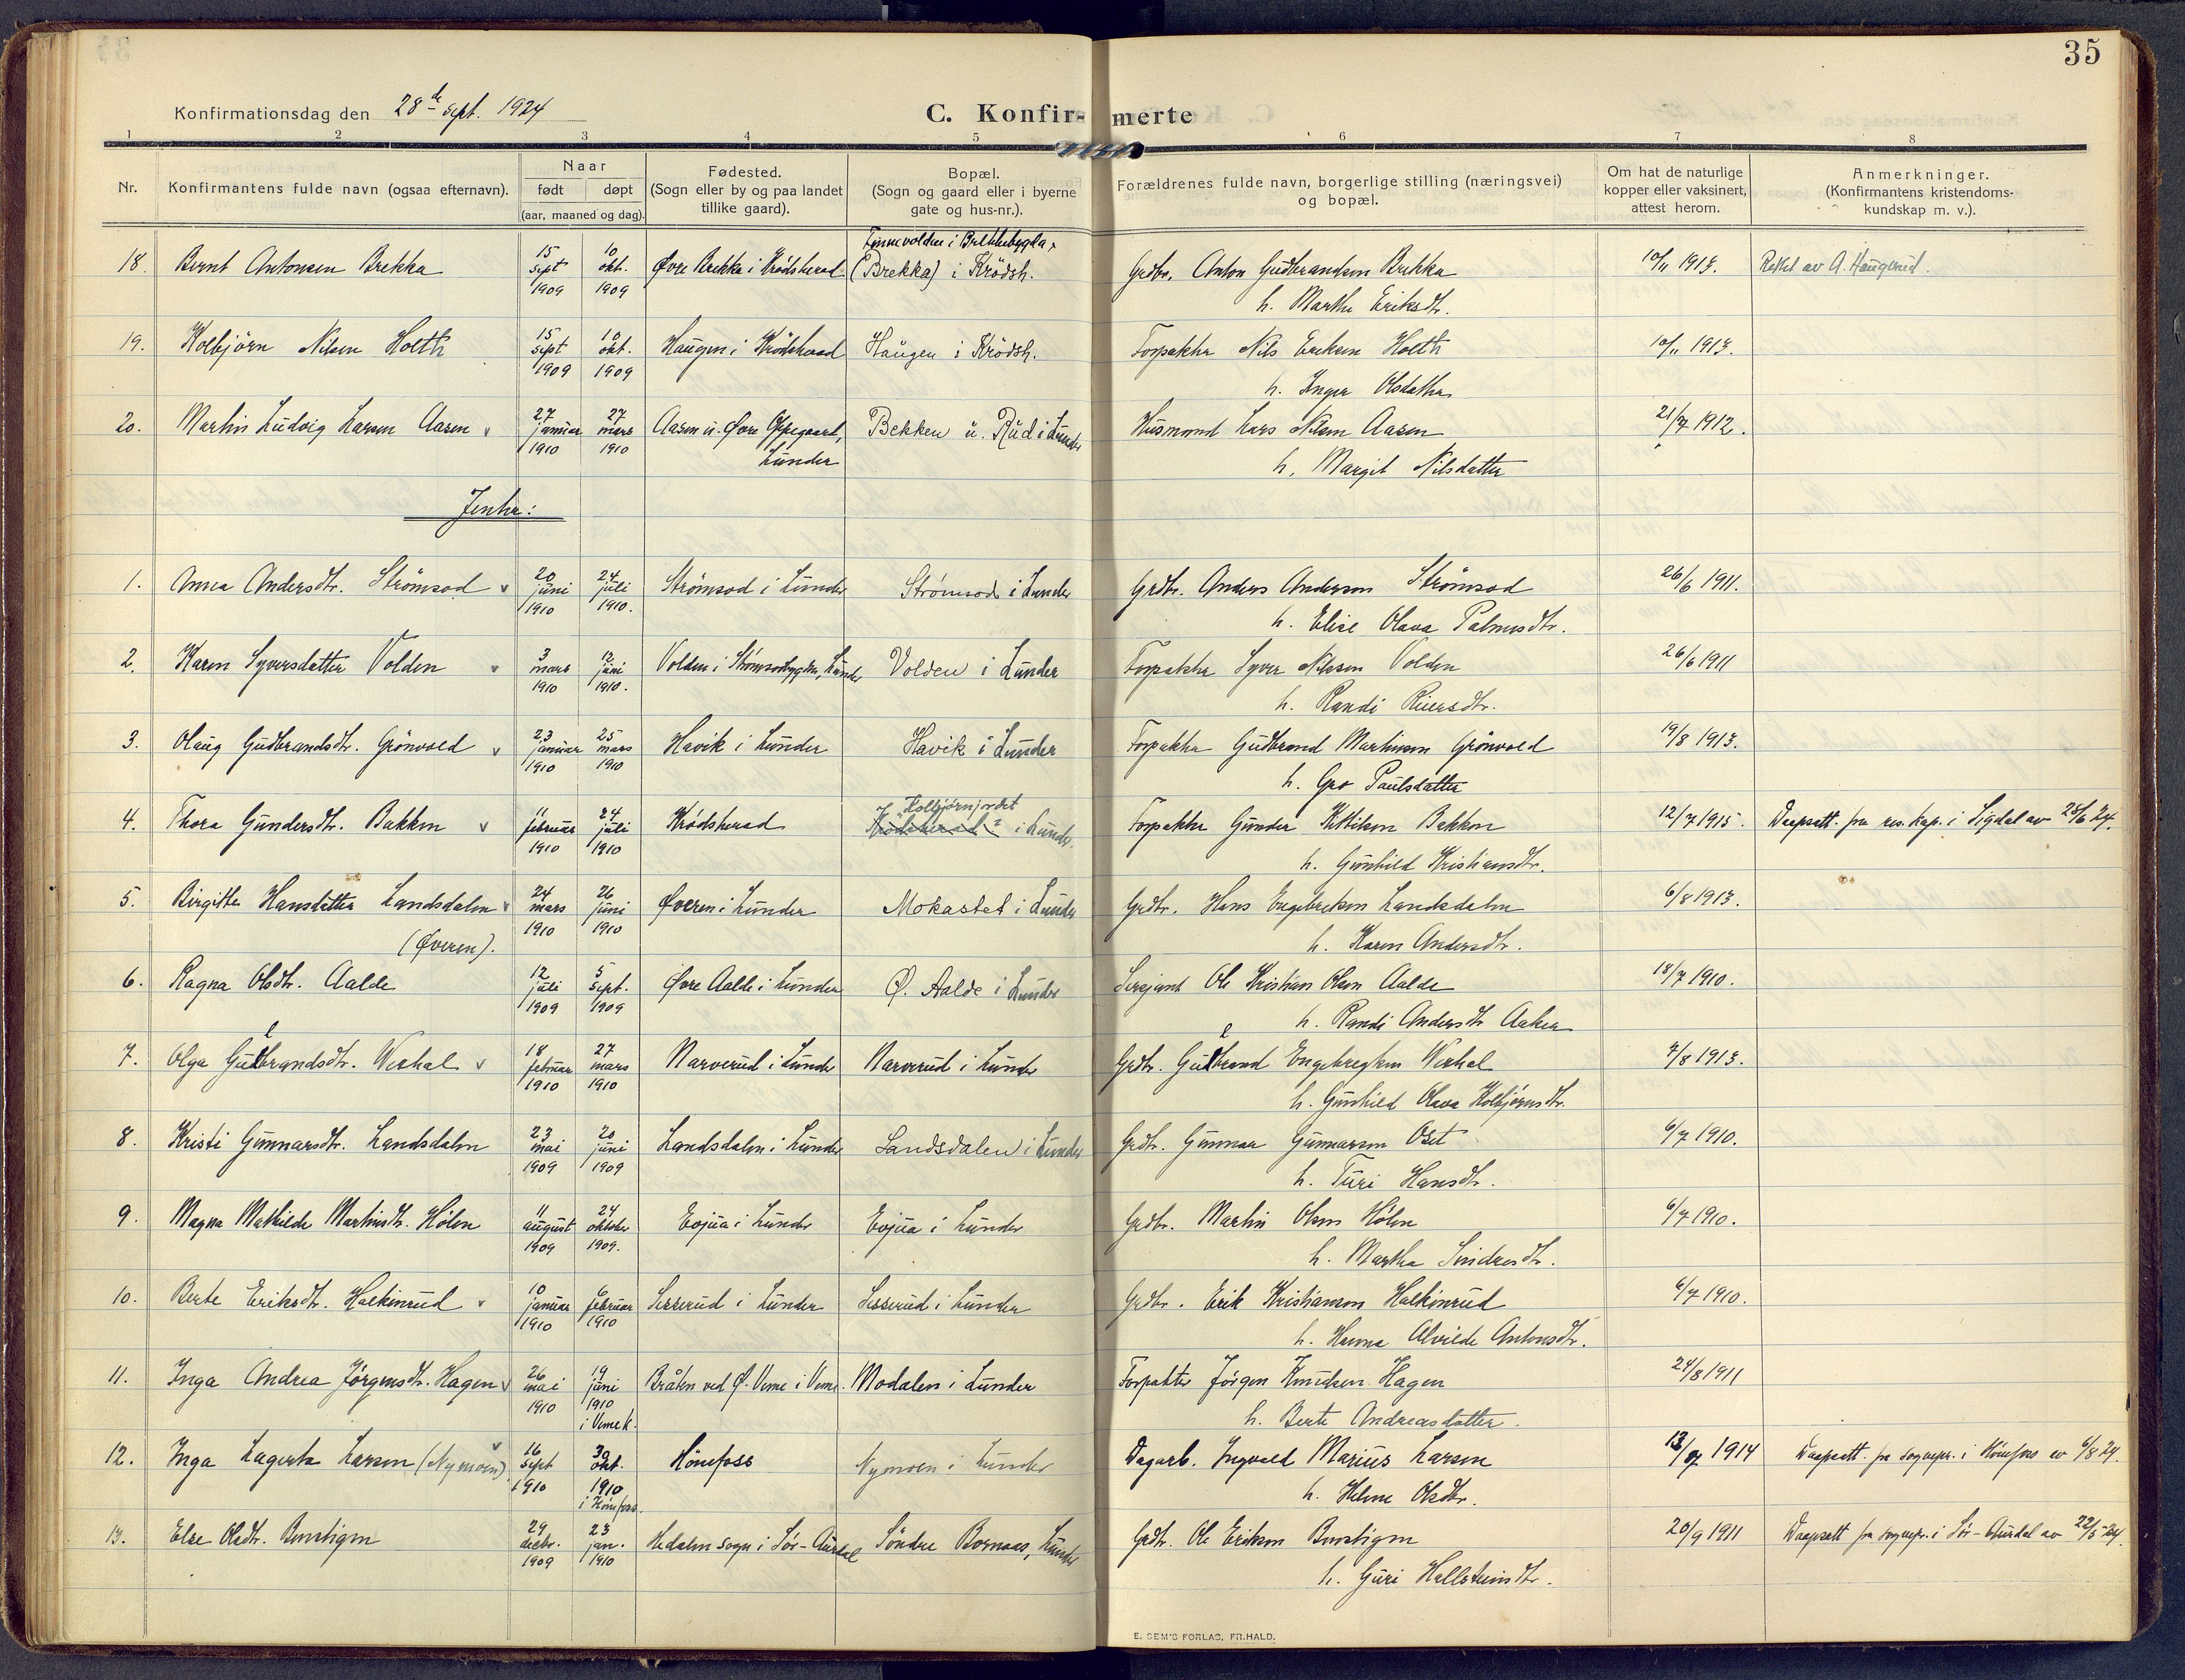 35
Konfirmationsdag den 28de sept. 1924
C. Konfir- merte
1 2 3 4 5 6 7 8
Nr.
Konfirmantens fulde navn (ogsaa efternavn).
Naar
født døpt
(aar, maaned og dag).
Fødested.
(Sogn eller by og paa landet
tillike gaard).
Bopæl.
(Sogn og gaard eller i byerne
gate og hus-nr.).
Forældrenes fulde navn, borgerlige stilling (næringsvei)
og bopæl.
Om hat de naturlige
kopper eller vaksinert,
attest herom.
Anmerkninger.
(Konfirmantens kristendoms-
kundskap m. v.).
Finnevolden i Brekkebygda
18. Bernt Antonsen Brekka 15 sept 1909 10 okt. 1909 Øvre Brekka i Krödsherad (Brekka) i Krödsh. Grdbr. Anton Gudbrandsen Brekka 10/11 1913. A. Haugerud.
h. Marthe Eriksdtr.
19. Kolbjörn Nilsen Holth 15 sept 1909 10 okt. 1909 Haugen i Krödsherad Haugen i Krödsh. Forpakter Nils Eriksen Holth 10/11 1913.
h. Inger Olsdatter
20. Martin Ludvig Larsen Aasen 27 januar 1910 27 mars 1910 Aasen u. Øvre Oppegaard, Bekken u. Rud i Lunder Husmand Lars Nilsen Aasen 21/7 1912.
Lunder
h. Margit Nilsdatter
Jenter:
1. Anna Andersdtr. Strömsod 20 juni 1910 24 juli 1910. Strömsod i Lunder Strömsod i Lunder Grdbr. Anders Andersen Strömsod 26/6 1911.
h. Elise Olava Palmesdtr.
2. Karen Syversdatter Volden 3 mars 1910 12 juni 1910. Volden i Strömsodbygden, Lunder Volden i Lunder Forpakter Syver Nilsen Volden 26/6 1911
h. Randi Reiersdtr.
3. Olaug Gudbrandsdtr. Grönvold 23 januar 1910 25 mars 1910 Havik i Lunder Havik i Lunder Forpakter Gudbrand Martinsen Grönvold 19/8 1913.
h. Gro Paulsdatter
Kolbjörnjordet
4. Thora Gundersdtr. Bakken 11 februar 1910 24 juli 1910 Krödsherad Krödsherad? i Lunder. Forpakter Gunder Kittilsen Bakken 12/7 1915. Daapsatt. fra res. kap. i Sigdal av 28/6 24.
h. Gunhild Kristiansdtr.
5. Birgitte Hansdatter Landsdalen 24 mars 1910 26 juni 1910 Øveren i Lunder Mokastet i Lunder Grdbr. Hans Engebretsen Landsdalen 6/8 1913.
(Øveren).
h. Karen Andersdtr.
6. Ragna Olsdtr. Aalde 12 juli 1909 5 sept. 1909 Øvre Aalde i Lunder Ø. Aalde i Lunder Sersjant Ole Kristian Olsen Aalde 18/7 1910.
h. Randi Andersdtr Aakra
7. Olga Gulbrandsdtr. Weshal 18 februar 1910 27 mars 1910 Narverud i Lunder Narverud i Lunder Grdbr. Gulbrand Engebregtsen Weshal 7/8 1913.
h. Gunhild Olava Kolbjörnsdtr.
8. Kristi Gunnarsdtr. Landsdalen 23 mai 1909 20 juni 1909 Landsdalen i Lunder Landsdalen i Lunder Grdbr. Gunnar Gunnarsen Oset 6/7 1910.
h. Turi Hansdtr.
9. Magna Mathilde Martinsdtr. Hölen 11 august 1909 24 oktober 1909. Evjua i Lunder Evjua i Lunder Grdbr. Martin Olsen Hölen 6/7 1910.
h. Martha Sindresdtr.
10. Berte Eriksdtr. Halkinrud 10 januar 1910 6 februar 1910 Sesserud i Lunder Sesserud i Lunder Grdbr. Erik Kristiansen Halkinrud 6/7 1910.
h. Hanna Alvilde Antonsdtr.
11. Inga Andrea Jörgensdtr. Hagen 26 mai 1910 19 juni 1910 i Veme k. Bråten ved Ø. Veme i Veme. Modalen i Lunder Forpakter Jörgen Knudsen Hagen 24/8 1911
h. Berte Andreasdatter.
12. Inga Lagerta Larsen (Nymoen) 16 sept 1910 30 okt. 1910 i Hönefoss. Hönefoss Nymoen i Lunder Dagarb. Ingvald Marius Larsen 13/9 1914 Daapsatt. fra sognepr. i Hönefoss av 6/8 24.
h. Helene Olsdtr.
13. Else Olsdtr. Buvstigen 29 decbr. 1909 23 jan. 1910 Hedalen sogn i Sör-Aurdal Söndre Bornaas, Lunder Grdbr. Ole Eriksen Buvstigen 20/9 1911 Daapsatt fra sognepr. i Sör-Aurdal av 22/5 24.
h. Guri Hallsteinsdtr.
E. SEM'S FORLAG, FR.HALD.